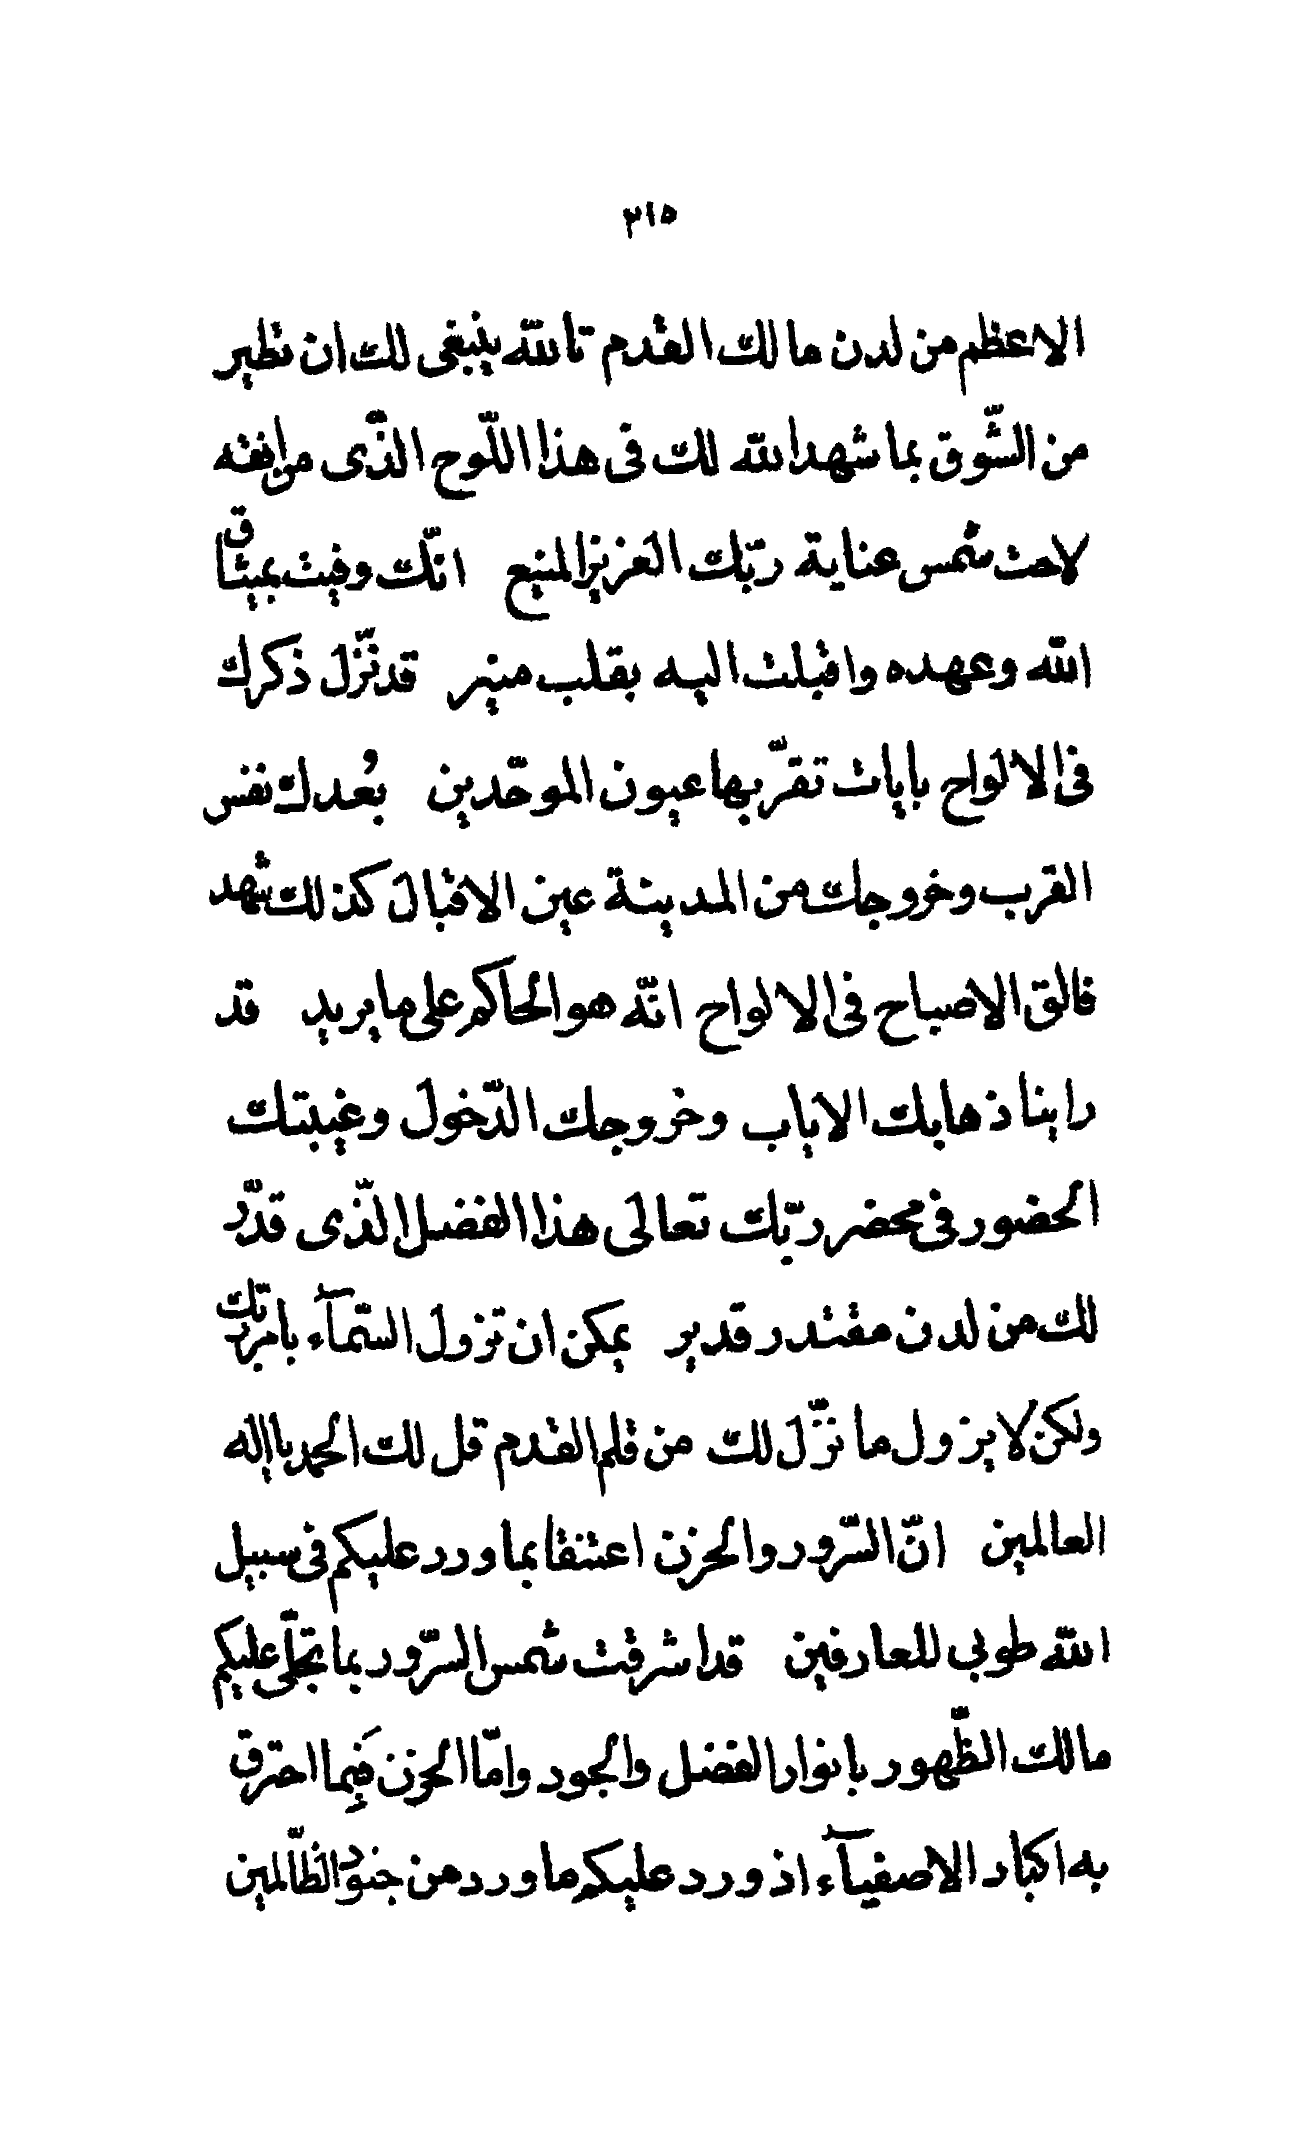 ٣١٥
الاعظم من لدن مالك القدم تالله ينبغى لك ان تطير
من الشّوق بما شهد الله لك فى هذا اللّوح الّذى من افقه
لاحت شمس عناية ربّك العزيز المنيع انّك وفيت بميثاق
الله وعهده واقبلت اليه بقلب منير قد نزّل ذكرك
فى الالواح بايات تقرّ بها عيون الموحّدين بُعدك نفس
القرب وخروجك من المدينة عين الاقبال كذلك شهد
فالق الاصباح فى الالواح انّه هو الحاكم على ما يريد قد
راينا ذهابك الاياب وخروجك الدّخول وغيبتك
الحضور فى محضر ربّك تعالى هذا الفضل الّذى قدّر
لك من لدن مقتدر قدير يمكن ان تزول السّمآء بامر ربّك
ولكن لا يزول ما نزّل لك من قلم القدم قل لك الحمد يا اله
العالمين انّ السّرور والحزن اعتنقا بما ورد عليكم فى سبيل
الله طوبى للعارفين قد اشرقت شمس السّرور بما تجلّى عليكم
مالك الظّهور بانوار الفضل والجود وامّا الحزن فَبِما احترق
به اكباد الاصفيآء اذ ورد عليكم ما ورد من جنود الظّالمين